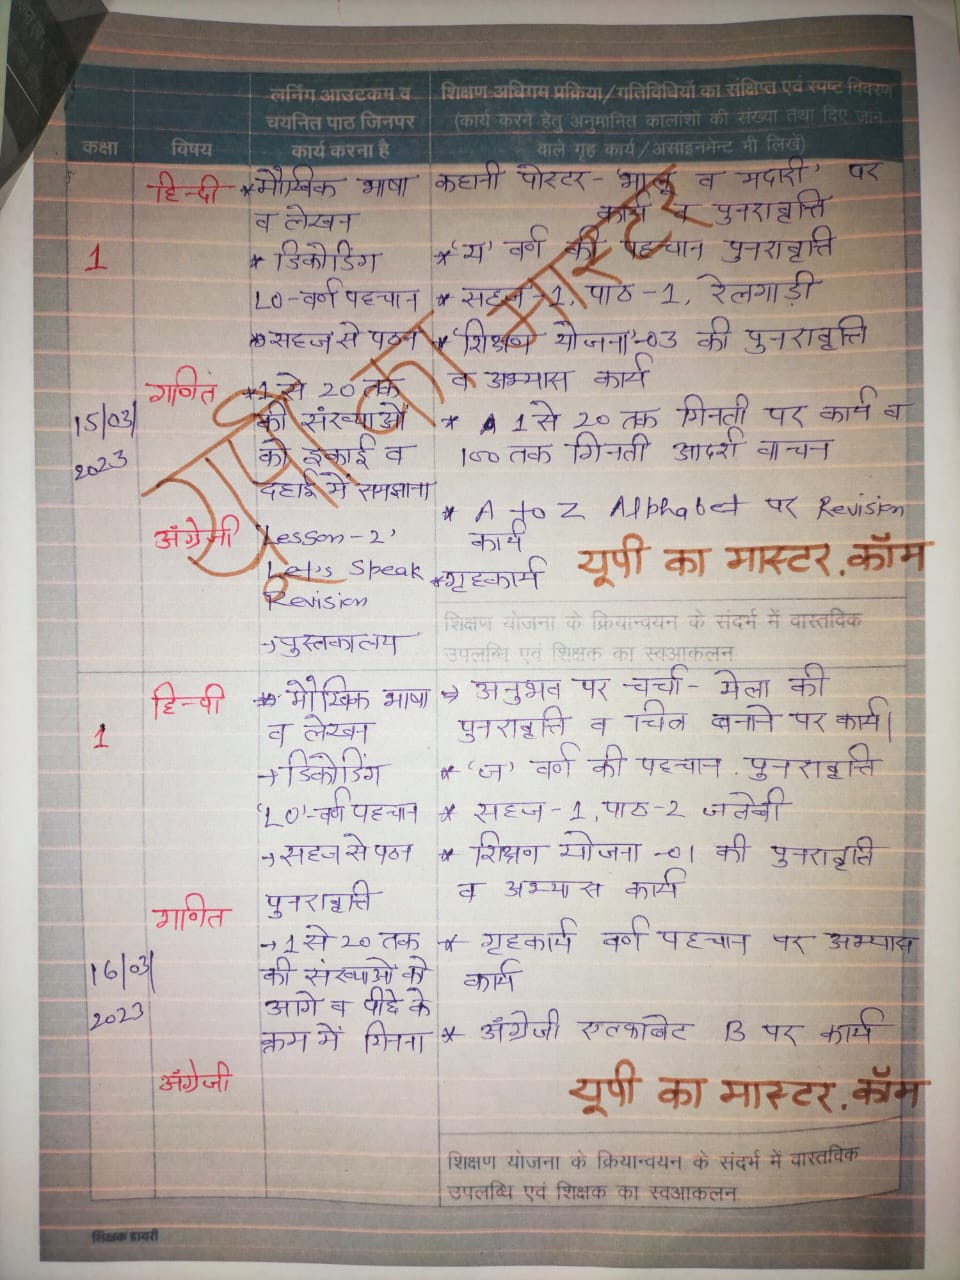 लर्निंग आउटकम व
चयनित पाठ जिनपर
कार्य करना है
शिक्षण अधिगम प्रक्रिया/गतिविधियों का संक्षिप्त एवं स्पष्ट विवरण
(कार्य करने हेतु अनुमानित कालांशो की संख्या तथा दिए जाने
वाले गृह कार्य/असाइनमेन्ट भी लिखें)
कक्षा
विषय
हिन्दी
* मौखिक भाषा
व लेखन
* डिकोडिंग
LO-वर्ण पहचान
* सहज से पठन
कहानी पोस्टर - 'भालू व मदारी' पर
कार्य व पुनरावृत्ति
* 'य' वर्ण की पहचान पुनरावृत्ति
* सहज-1, पाठ-1, रेलगाड़ी
* 'शिक्षण योजना'-03 की पुनरावृत्ति
व अभ्यास कार्य
1
15/03/
2023
गणित
* 1 से 20 तक
की संख्याओं
को इकाई व
दहाई में समझाना
* 1 से 20 तक गिनती पर कार्य व
100 तक गिनती आदर्श वाचन
अंग्रेजी
'Lesson-2'
Let's Speak
Revision
→ पुस्तकालय
* A to Z Alphabet पर Revision
कार्य
* गृहकार्य
यूपी का मास्टर.कॉम
यूपी का मास्टर
शिक्षण योजना के क्रियान्वयन के संदर्भ में वास्तविक
उपलब्धि एवं शिक्षक का स्वआकलन
1
16/03/
2023
हिन्दी
→ मौखिक भाषा
व लेखन
→ डिकोडिंग
'LO'-वर्ण पहचान
→ सहज से पठन
→ अनुभव पर चर्चा - मेला की
पुनरावृत्ति व चित्र बनाने पर कार्य।
* 'ज' वर्ण की पहचान, पुनरावृत्ति
* सहज-1, पाठ-2 जलेबी
* शिक्षण योजना -01 की पुनरावृत्ति
व अभ्यास कार्य
गणित
पुनरावृत्ति
→ 1 से 20 तक
की संख्याओं को
आगे व पीछे के
क्रम में गिनना
* गृहकार्य वर्ण पहचान पर अभ्यास
कार्य
* अंग्रेजी एल्फाबेट B पर कार्य
अंग्रेजी
यूपी का मास्टर.कॉम
शिक्षण योजना के क्रियान्वयन के संदर्भ में वास्तविक
उपलब्धि एवं शिक्षक का स्वआकलन
शिक्षक डायरी